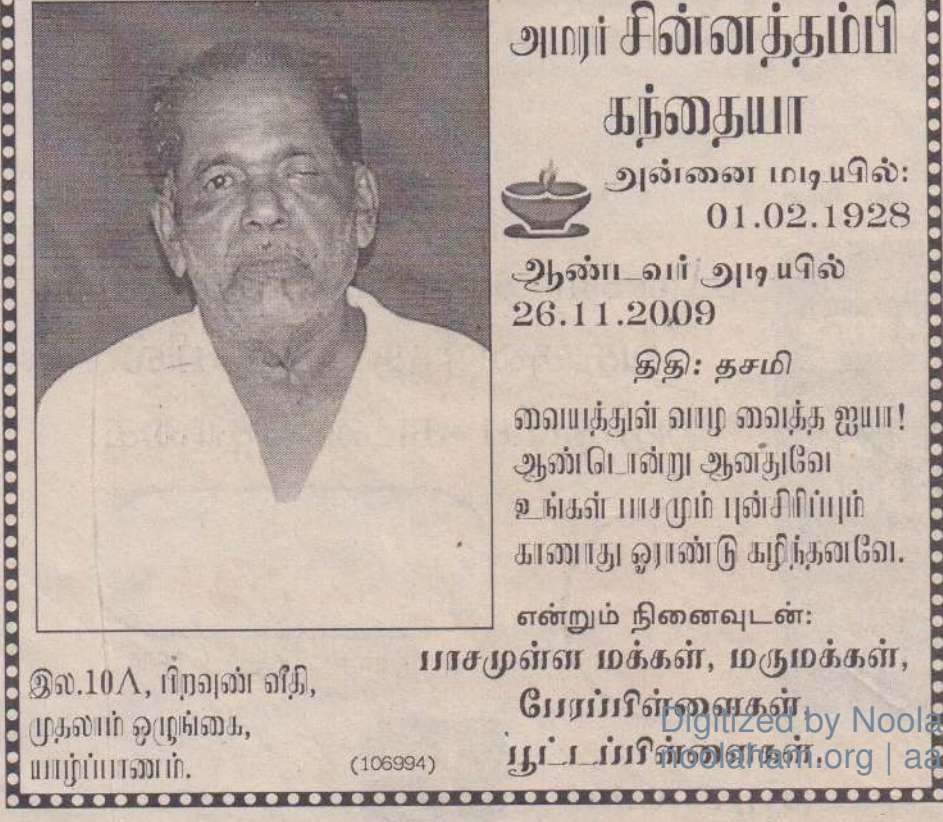 அமரர் சின்னத்தம்பி
கந்தையா
அன்னை மடியில்:
01.02.1928
ஆண்டவர் அடியில்
26.11.2009
திதி: தசமி
வையத்துள் வாழ வைத்த ஐயா!
ஆண்டொன்று ஆனதுவே
உங்கள் பாசமும் புன்சிரிப்பும்
காணாது ஓராண்டு கழிந்தனவே.
என்றும் நினைவுடன்:
பாசமுள்ள மக்கள், மருமக்கள்,
பேரப்பிள்ளைகள்,
பூட்டப்பிள்ளைகள்.
இல.10A, பிறவுண் வீதி,
முதலாம் ஒழுங்கை,
யாழ்ப்பாணம்.
(106994)
Digitized by Noola
noolaham.org | aa